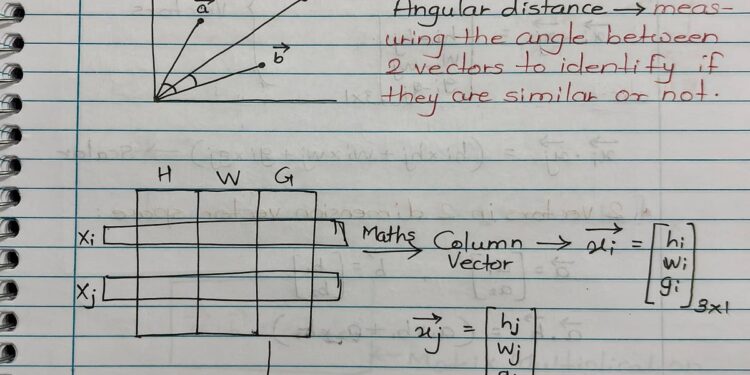 a
Angular distance → meas-
uring the angle between
b
2 vectors to identify if
they are similar or not.
H W G
Xi
Maths Column Vector → xi = [hi wi gi] 3x1
Xj
xj = [hj wj